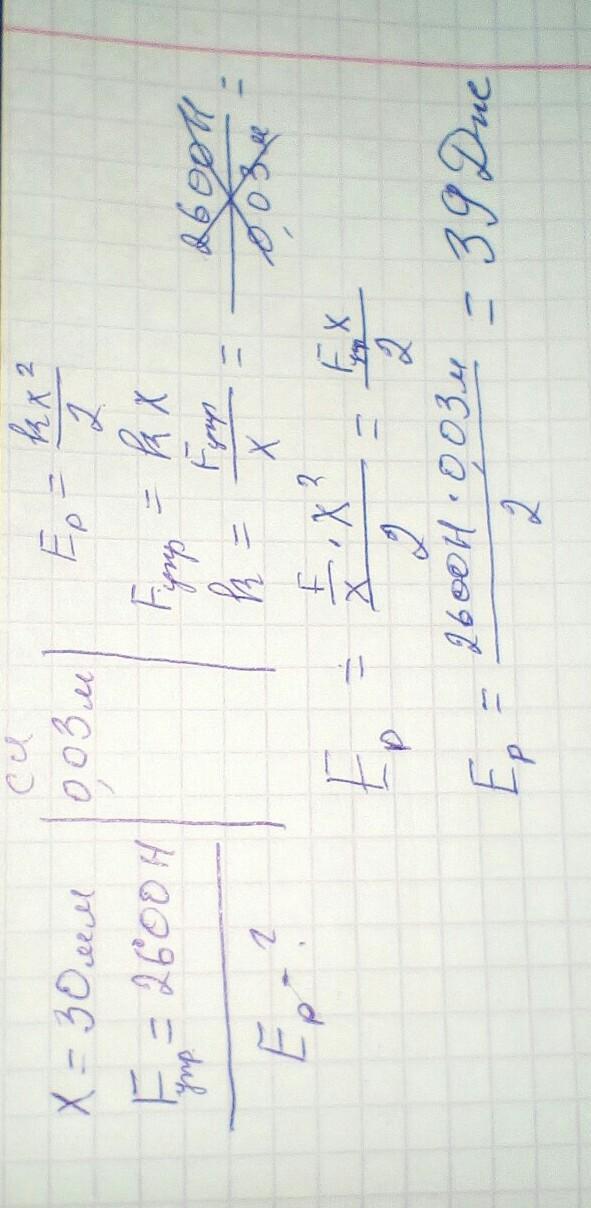 x = 30мм
Fупр = 2600Н
Ep - ?
СИ
0,03м
Ep = kx²/2
Fупр = kx
k = Fупр/x = 2600Н/0,03м =
Ep = F/x · x²/2 = Fупx/2
Ep = 2600Н · 0,03м/2 = 39Дж